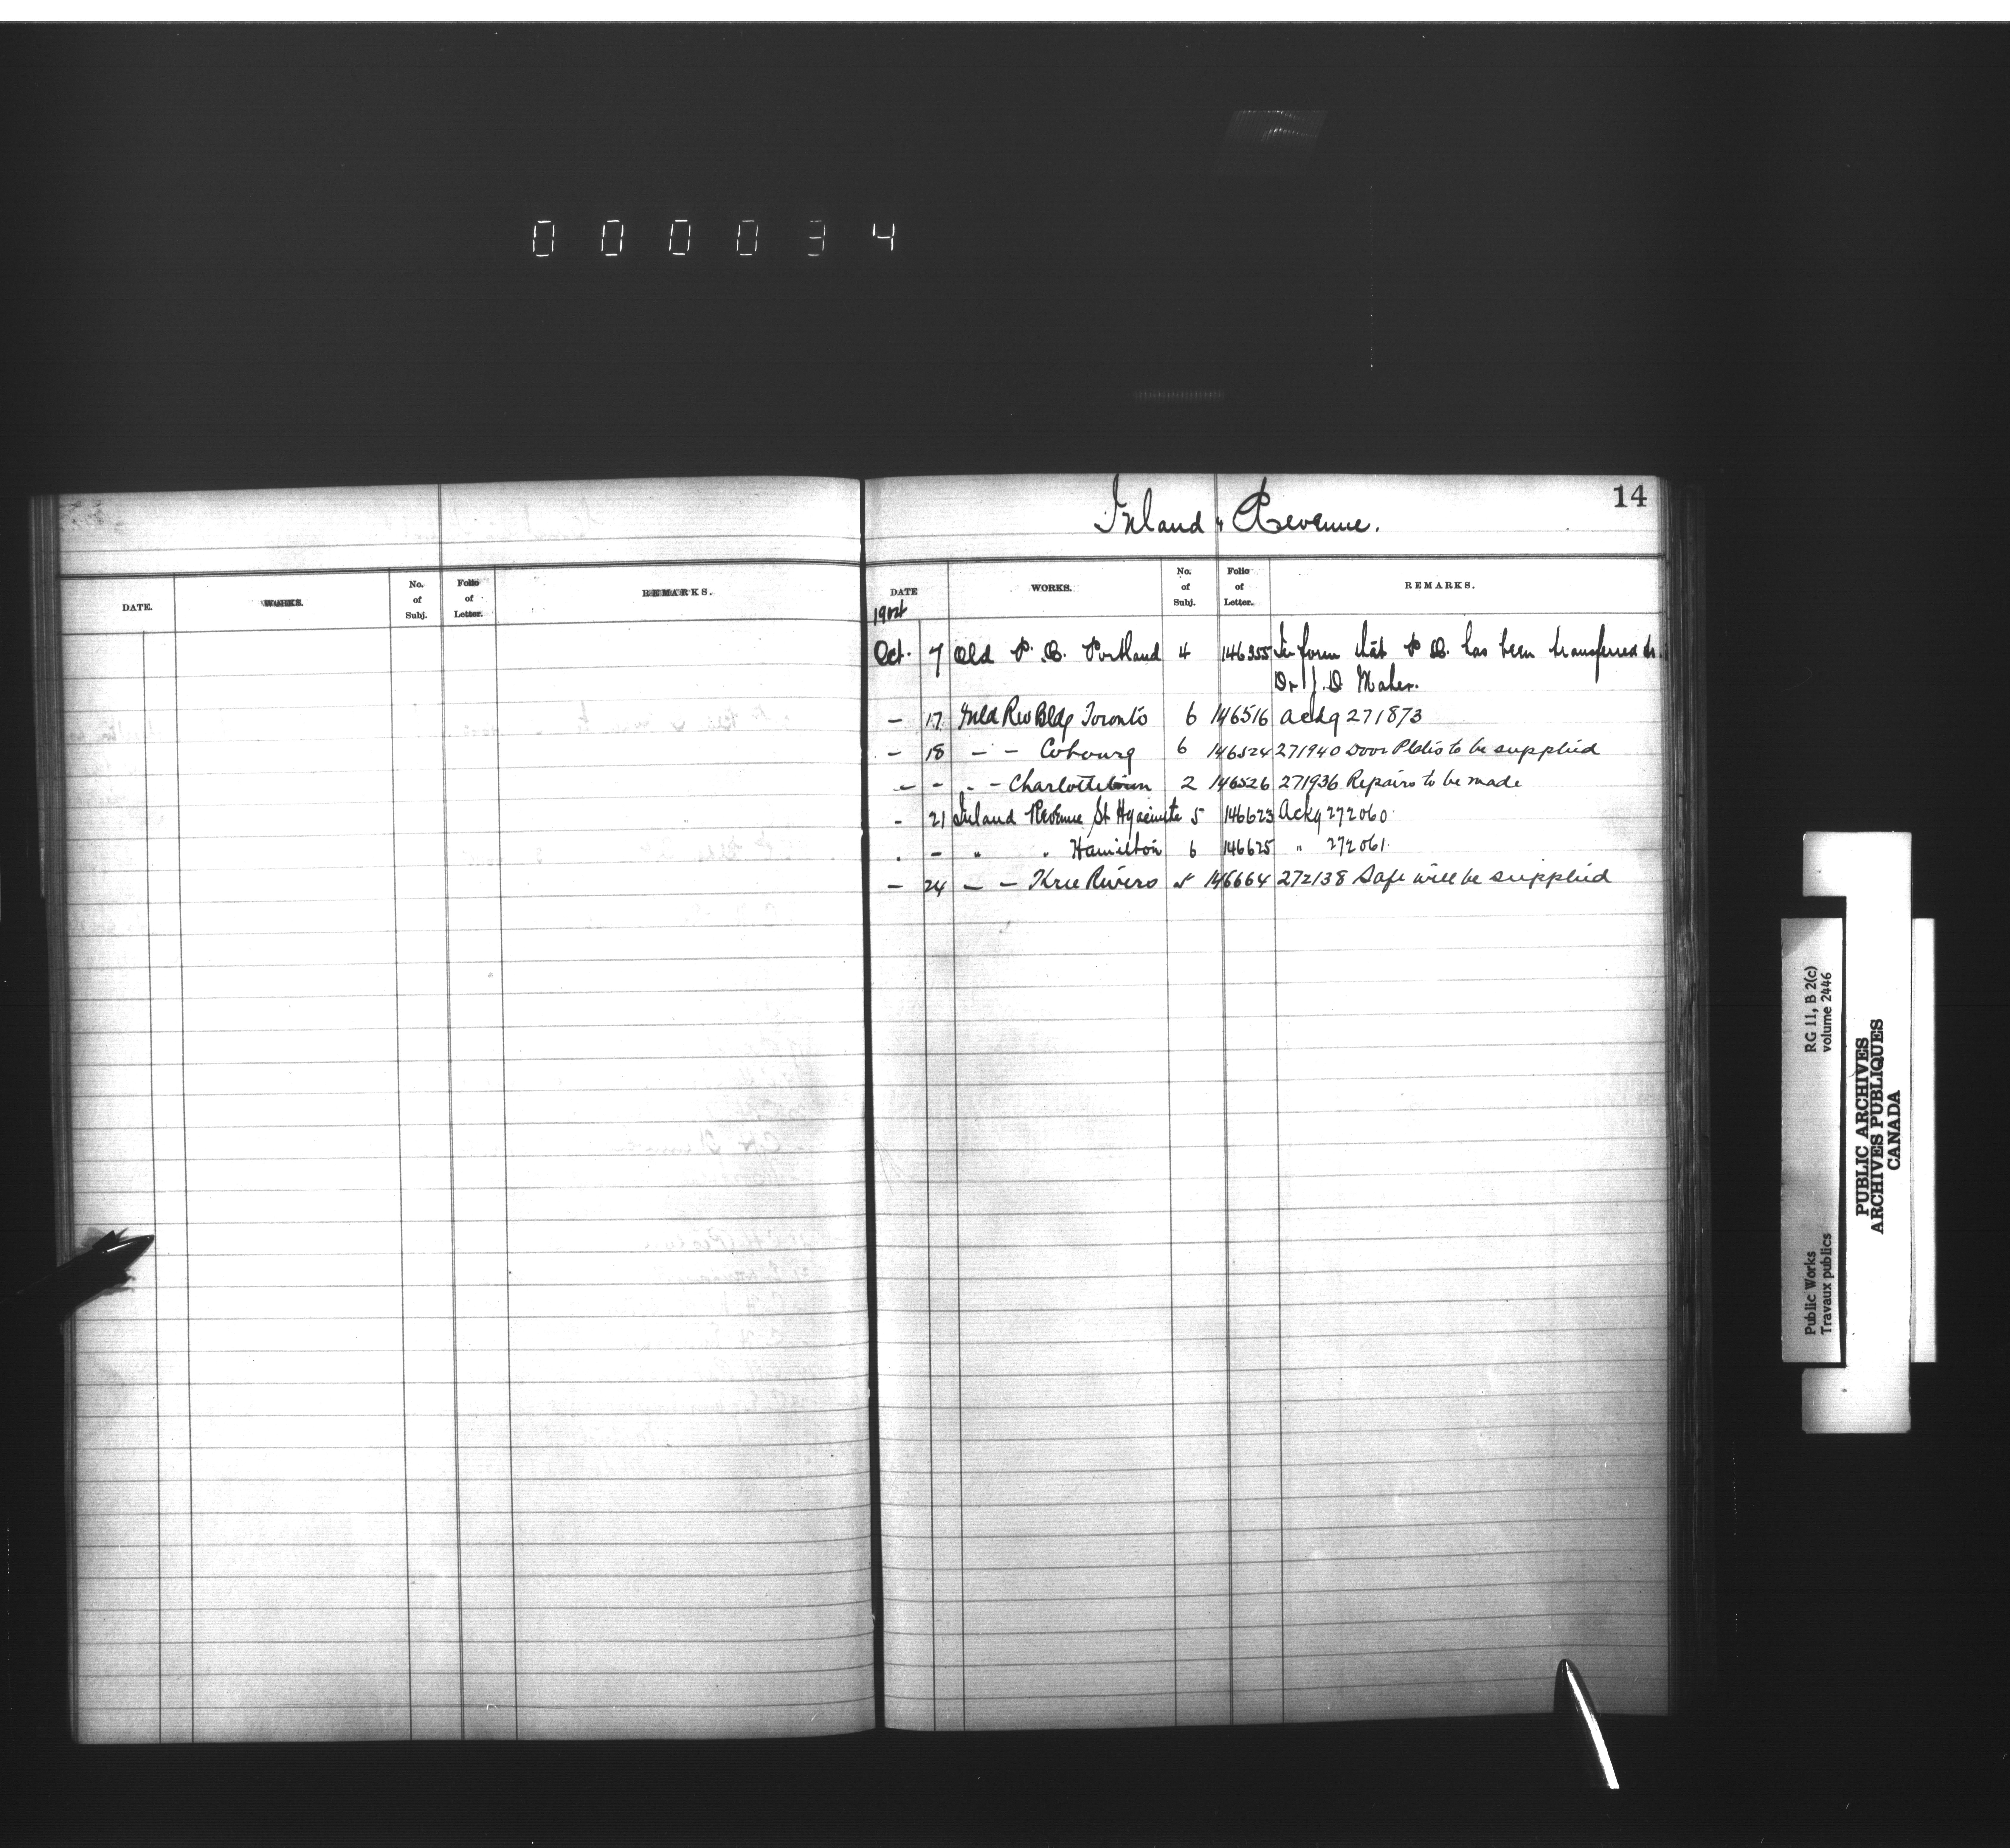 000034
14
Inland Revenue.
DATE. WORKS. No. of Subj. Folio of Letter. REMARKS.
DATE WORKS. No. of Subj. Folio of Letter. REMARKS.
Oct. 7 Old P. B. Portland 4 146355 Inform that P B. has been transferred to
Dr J. D Maher.
— 17 Inld Rev Bldg Toronto 6 146516 Ackg 271873
— 18 — — Cobourg 6 146524 271940 Door Plates to be supplied
— — — — Charlottetown 2 146526 271936 Repairs to be made
- 21 Inland Revenue St Hyacinte 5 146623 Ackg 272060
. - " " Hamilton 6 146625 " 272061.
— 24 — — Three Rivers 5 146664 272138 Safe will be supplied
Public Works RG 11, B 2(c)
Travaux publics volume 2446
PUBLIC ARCHIVES
ARCHIVES PUBLIQUES
CANADA